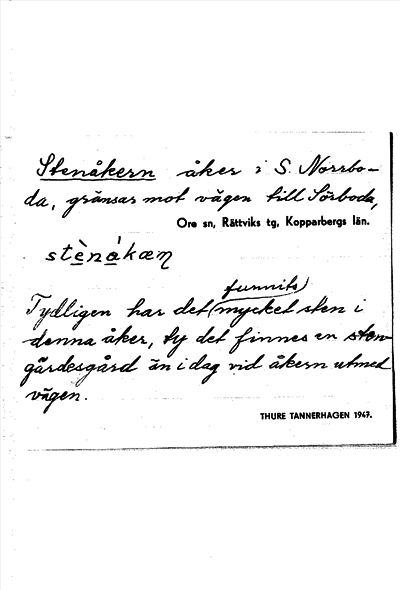 Stenåkern åker i S. Norrbo-
da, gränsar mot vägen till Sörboda,
Ore sn, Rättviks tg, Kopparbergs län.
stènákæṇ
funnits
Tydligen har det mycket sten i
denna åker, ty det finnes en sten-
gärdesgård än i dag vid åkern utmed
vägen.
THURE TANNERHAGEN 1947.